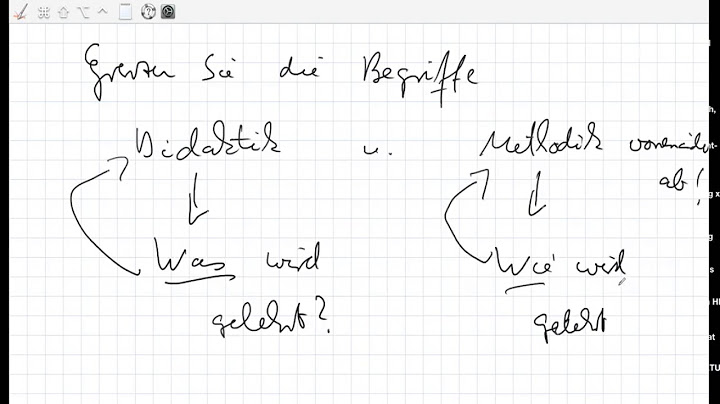 Grenzen Sie die Begriffe
Didaktik u. Methodik voneinander
ab!
Was wird Wie wird
gelehrt? gelehrt